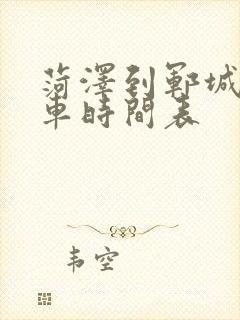 菏澤到鄆城
車時間表
韦空